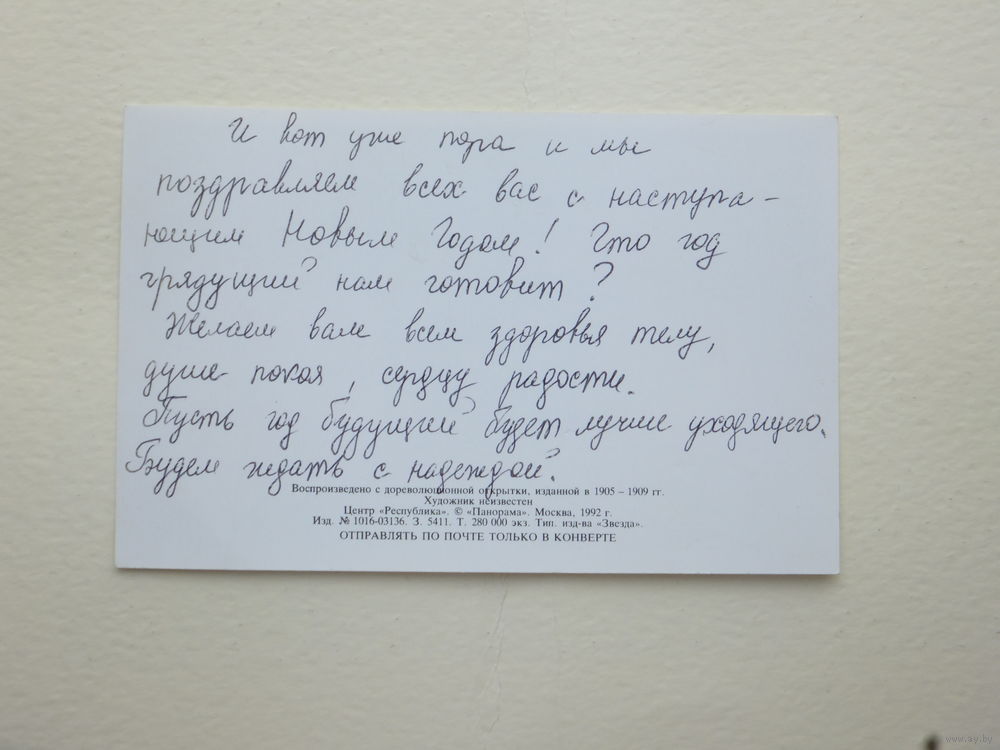 И вот уже пора и мы
поздравляем всех вас с наступа-
ющим Новым Годом! Что год
грядущий нам готовит?
Желаем вам всем здоровья телу,
душе покоя, сердцу радости.
Пусть год будущий будет лучше уходящего.
Будем ждать с надеждой.
Воспроизведено с дореволюционной открытки, изданной в 1905 – 1909 гг.
Художник неизвестен
Центр «Республика». © «Панорама». Москва, 1992 г.
Изд. № 1016-03136. З. 5411. Т. 280 000 экз. Тип. изд-ва «Звезда».
ОТПРАВЛЯТЬ ПО ПОЧТЕ ТОЛЬКО В КОНВЕРТЕ
www.ay.by